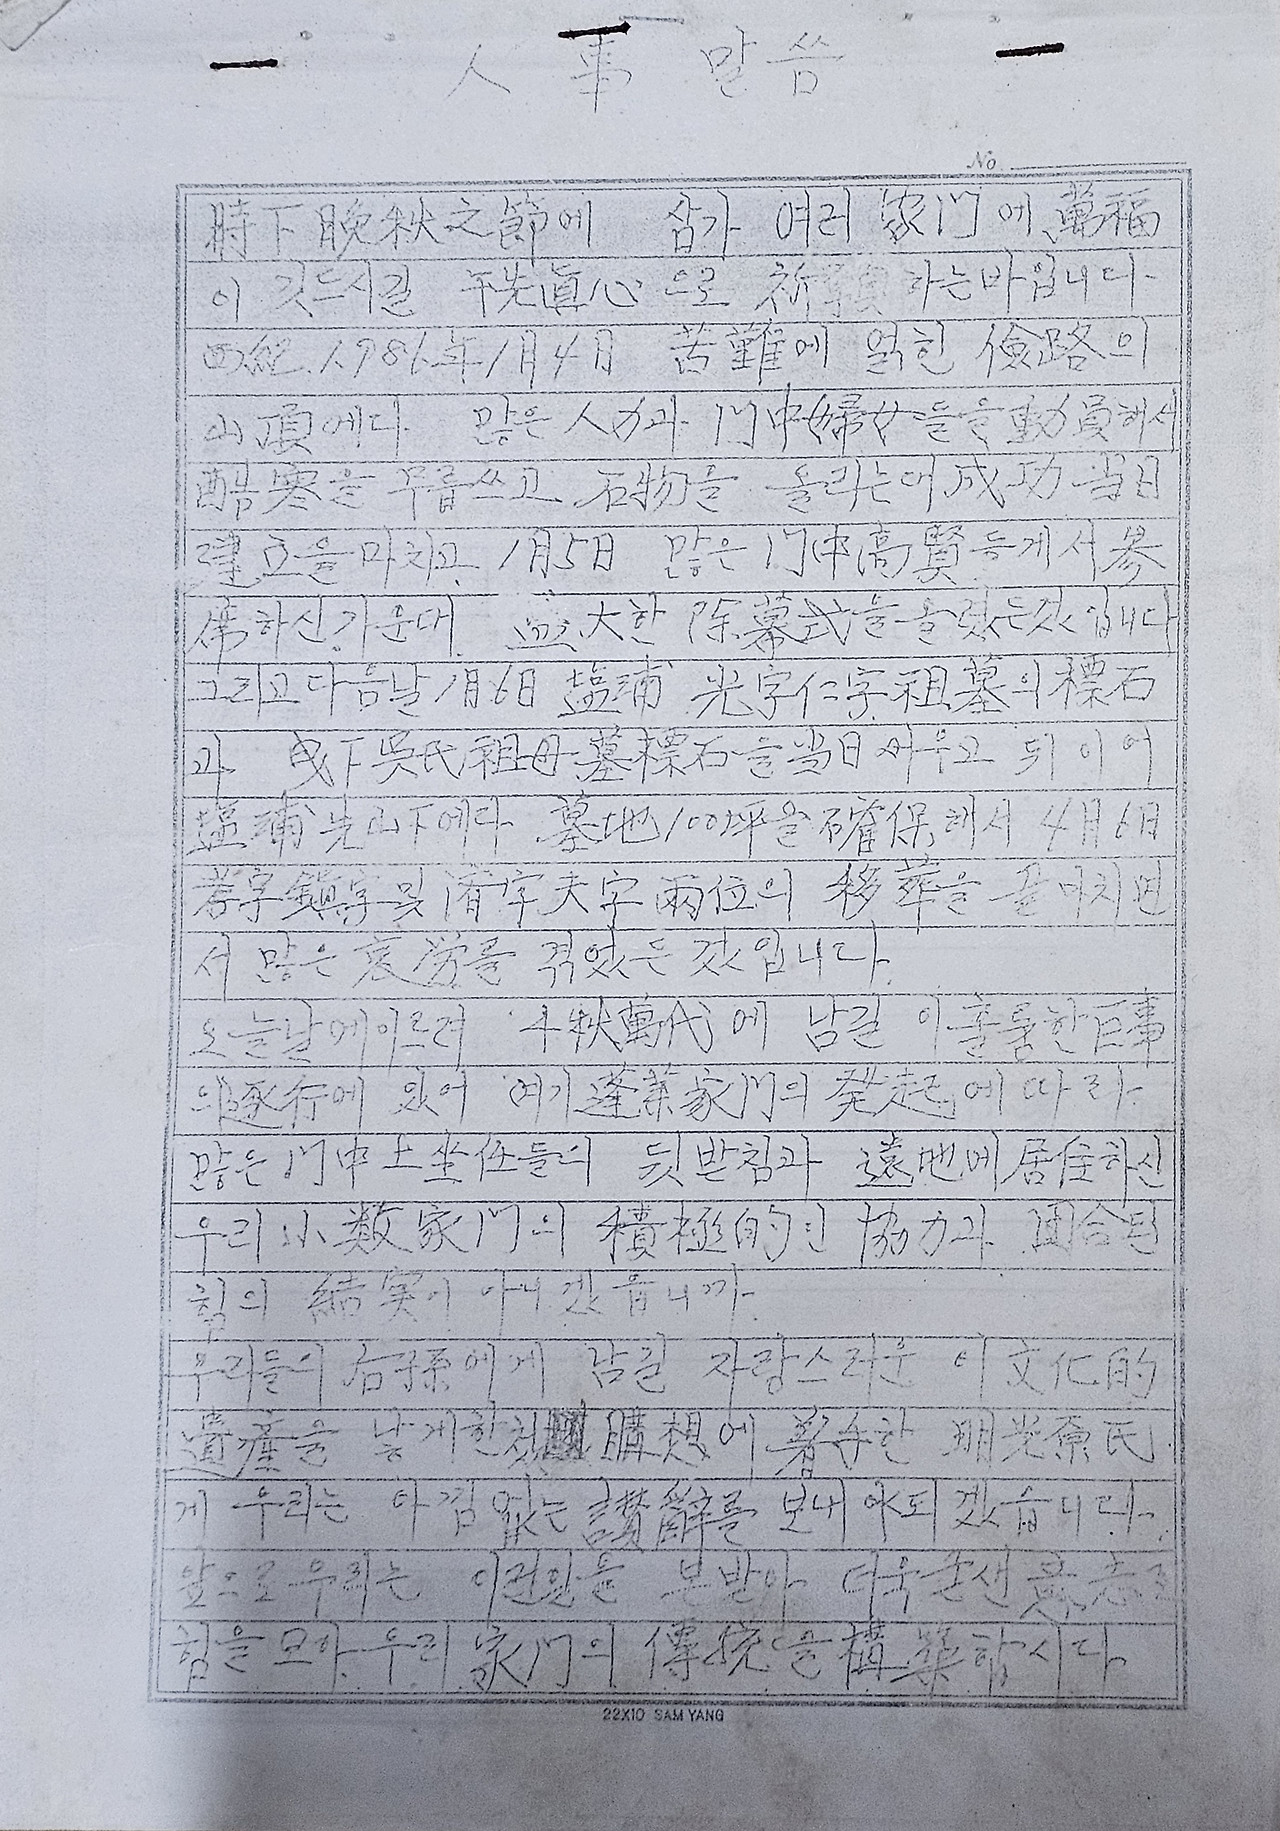 人事 말씀
No
時下晩秋之節에 삼가 여러 家門에 萬福
이 깃드시길 于先眞心으로 祈願하는바입니다.
西紀 1986年 1月 4日 苦難에 얽힌 險路의
山頂에다 많은 人力과 門中婦女들을 動員해서
酷寒을 무릅쓰고 石物을 올리는데 成功 当日
建立을 마치고 1月5日 많은 門中高賢들게서 参
席하신 가운데 盛大한 除幕式을 올렸든것입니다
그리고 다음날 1月6日 塩浦 光字仁字 祖墓의 標石
과 下吳氏祖母墓標石을 当日 세우고 뒤이어
塩浦先山下에다 墓地100坪을 確保해서 4月6日
字鎭字및 字夫字 兩位의 移葬을 끝마치면
서 많은 哀勞를 겪었든 것입니다.
오늘날에이르러 千秋萬代에 남길 이훌륭한 巨事
의 遂行에 있어 여기 蓬萊家門의 發起에 따라
많은 門中 들의 뒷받침과 遠地에 居住하신
우리 小数家門의 積極的인 協力과 団合된
힘의 結実이 아니겠읍니까.
우리들의 后孫에게 남길 자랑스러운 이 文化的
遺産을 남게한 構想에 着手한 明光 氏
게 우리는 아낌없는 讃辭를 보내야되겠습니다.
앞으로 우리는 이런일을 본받아 더욱굳센 意志로
힘을 모아 우리 家門의 傳統을 構築합시다.
22X10 SAM YANG